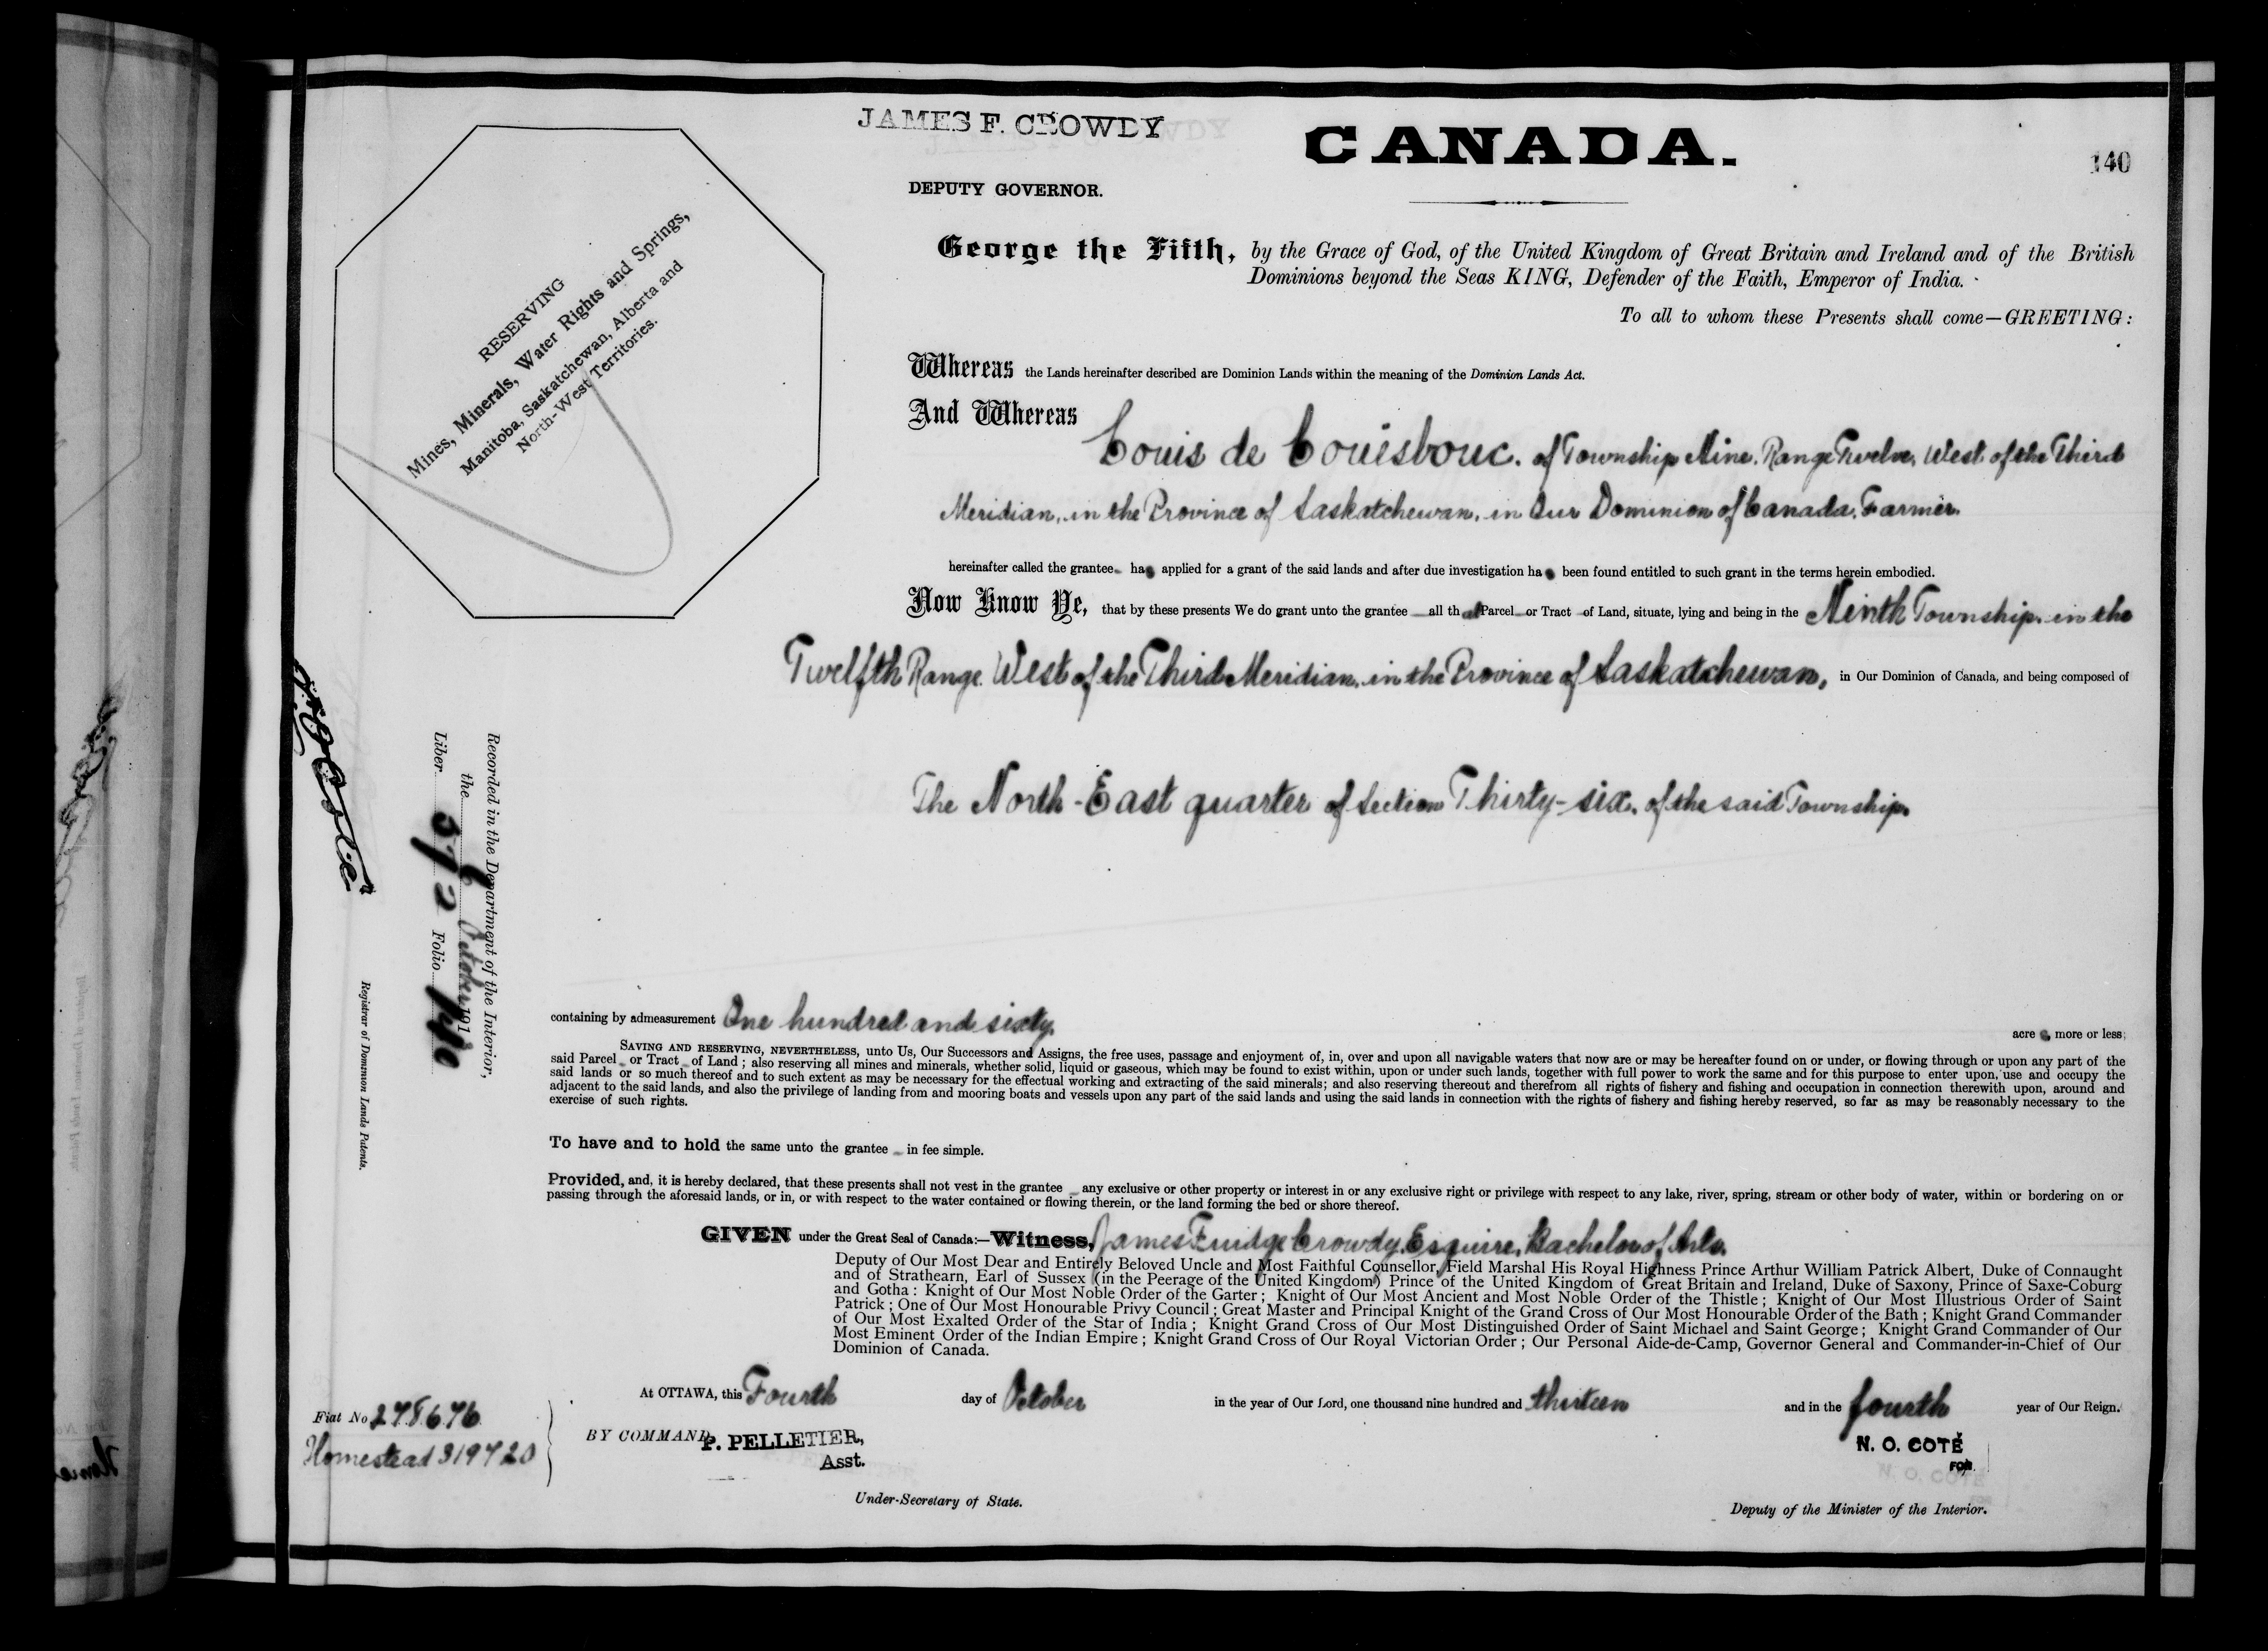 JAMES F. CROWDY
CANADA.
140
DEPUTY GOVERNOR.
RESERVING
Mines, Minerals, Water Rights and Springs,
Manitoba, Saskatchewan, Alberta and
North-West Territories.
George the Fifth, by the Grace of God, of the United Kingdom of Great Britain and Ireland and of the British
Dominions beyond the Seas KING, Defender of the Faith, Emperor of India.
To all to whom these Presents shall come—GREETING:
Whereas the Lands hereinafter described are Dominion Lands within the meaning of the Dominion Lands Act.
And Whereas
Louis de of Township Nine, Range Twelve, West of the Third
Meridian, in the Province of Saskatchewan, in Our Dominion of Canada, Farmer.
hereinafter called the grantee has applied for a grant of the said lands and after due investigation has been found entitled to such grant in the terms herein embodied.
Now Know Ye, that by these presents We do grant unto the grantee all that Parcel or Tract of Land, situate, lying and being in the Ninth Township, in the
Twelfth Range, West of the Third Meridian, in the Province of Saskatchewan, in Our Dominion of Canada, and being composed of
The North-East quarter of Section Thirty-six, of the said Township.
Recorded in the Department of the Interior,
the October 191
Liber 572 Folio 140
N. O. Coté
Registrar of Dominion Lands Patents.
containing by admeasurement One hundred and sixty acres, more or less;
SAVING AND RESERVING, NEVERTHELESS, unto Us, Our Successors and Assigns, the free uses, passage and enjoyment of, in, over and upon all navigable waters that now are or may be hereafter found on or under, or flowing through or upon any part of the
said Parcel or Tract of Land; also reserving all mines and minerals, whether solid, liquid or gaseous, which may be found to exist within, upon or under such lands, together with full power to work the same and for this purpose to enter upon, use and occupy the
said lands or so much thereof and to such extent as may be necessary for the effectual working and extracting of the said minerals; and also reserving thereout and therefrom all rights of fishery and fishing and occupation in connection therewith upon, around and
adjacent to the said lands, and also the privilege of landing from and mooring boats and vessels upon any part of the said lands and using the said lands in connection with the rights of fishery and fishing hereby reserved, so far as may be reasonably necessary to the
exercise of such rights.
To have and to hold the same unto the grantee in fee simple.
Provided, and, it is hereby declared, that these presents shall not vest in the grantee any exclusive or other property or interest in or any exclusive right or privilege with respect to any lake, river, spring, stream or other body of water, within or bordering on or
passing through the aforesaid lands, or in, or with respect to the water contained or flowing therein, or the land forming the bed or shore thereof.
GIVEN under the Great Seal of Canada:—Witness, James Fuidge Crowdy, Esquire, Bachelor of Arts,
Deputy of Our Most Dear and Entirely Beloved Uncle and Most Faithful Counsellor, Field Marshal His Royal Highness Prince Arthur William Patrick Albert, Duke of Connaught
and of Strathearn, Earl of Sussex (in the Peerage of the United Kingdom) Prince of the United Kingdom of Great Britain and Ireland, Duke of Saxony, Prince of Saxe-Coburg
and Gotha: Knight of Our Most Noble Order of the Garter; Knight of Our Most Ancient and Most Noble Order of the Thistle; Knight of Our Most Illustrious Order of Saint
Patrick; One of Our Most Honourable Privy Council; Great Master and Principal Knight of the Grand Cross of Our Most Honourable Order of the Bath; Knight Grand Commander
of Our Most Exalted Order of the Star of India; Knight Grand Cross of Our Most Distinguished Order of Saint Michael and Saint George; Knight Grand Commander of Our
Most Eminent Order of the Indian Empire; Knight Grand Cross of Our Royal Victorian Order; Our Personal Aide-de-Camp, Governor General and Commander-in-Chief of Our
Dominion of Canada.
At OTTAWA, this Fourth day of October in the year of Our Lord, one thousand nine hundred and thirteen and in the fourth year of Our Reign.
Fiat No 278676
Homestead 319720
BY COMMAND, P. PELLETIER,
Asst.
Under-Secretary of State.
N. O. COTÉ
FOR
Deputy of the Minister of the Interior.